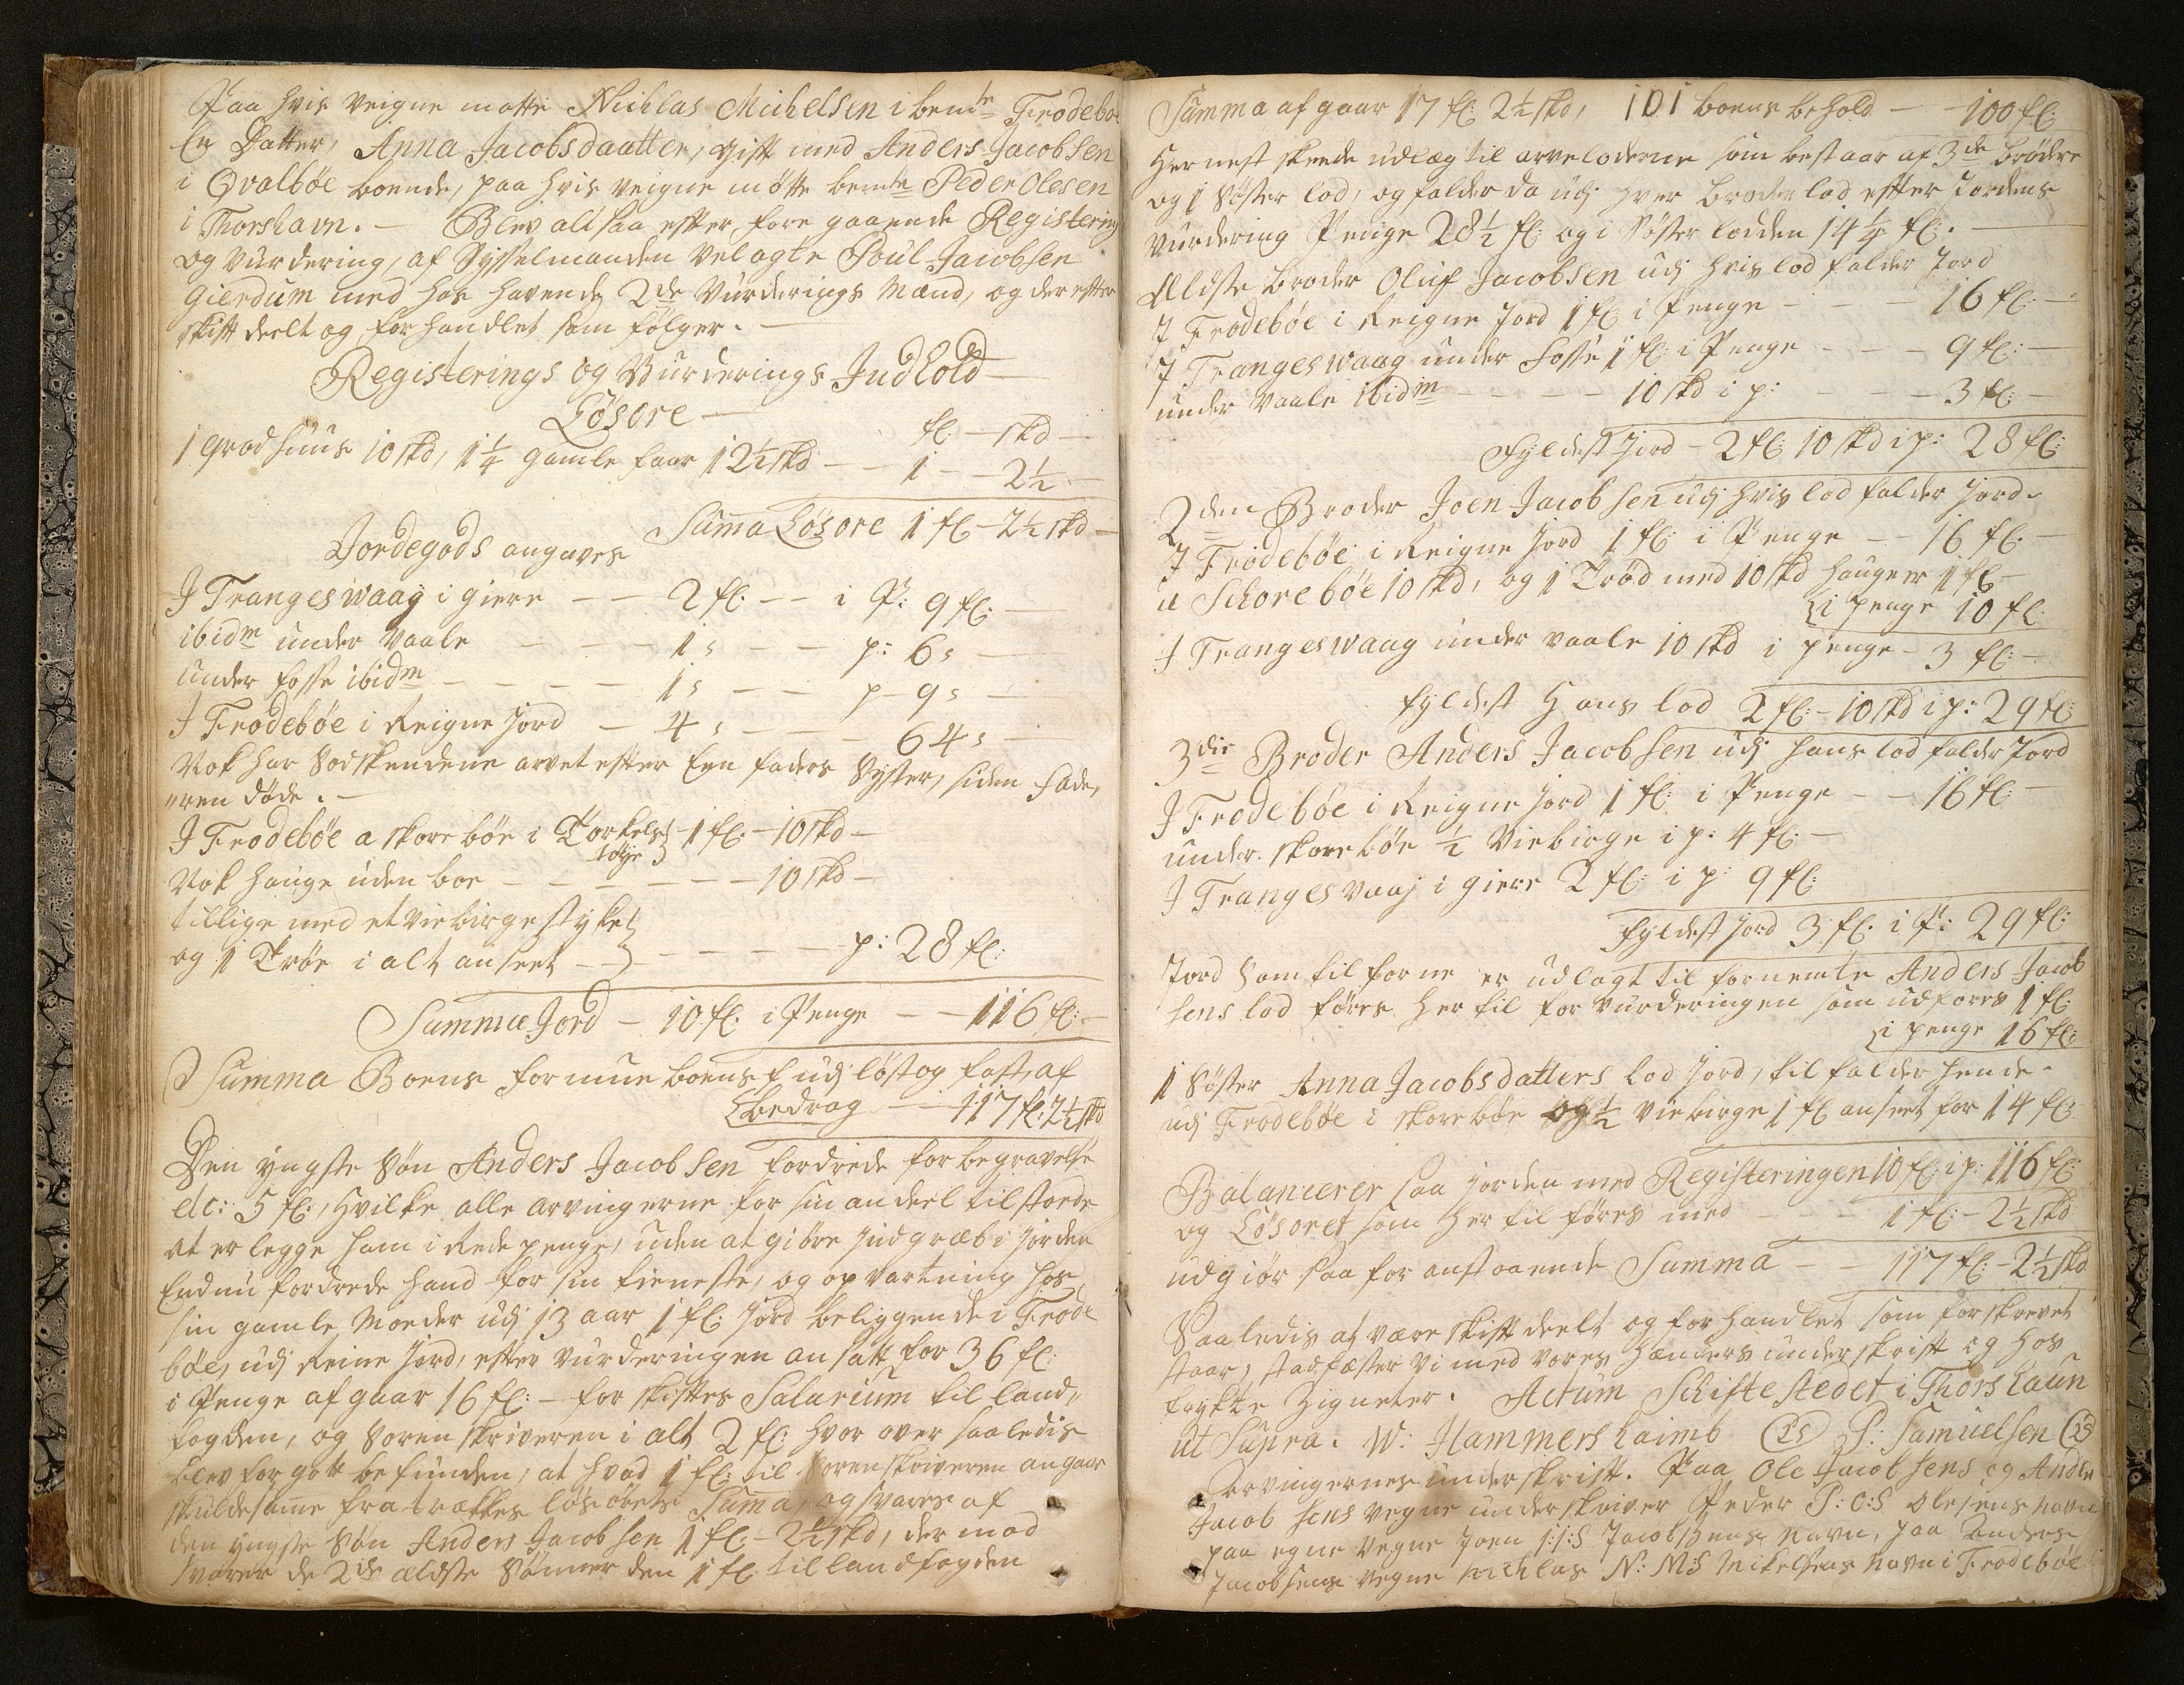 Paa hvis veigne motte Nichlas Michelsen i bemte Frodeboe
En Datter, Anna Jacobsdaatter, gift med Anders Jacobsen
i Qvalbøe boende, paa hvis veigne møtte bemte Peder Olesen
i Thorshavn. – Blev altsaa efter foregaaende Registering
og Vurdering, af Sysselmanden Velagte Poul Jacobsen
Gierdum med hos havende 2de Vurderings Mænd, og derefter
skift deelt og forhandlet som følger. –
Registerings og Vurderings Indhold
Løsøre –
fl: – skd –
1 Grødhuus 10 skd, 1¼ gamle faar 12½ skd – – 1 – 2½ –
Suma Løsøre 1 fl – 2½ skd –
Jordegods angaves
J Trangeswaag i giere – – 2 fl: – – i P: 9 fl: –
ibidm under Vaale – – – 1 s – – p: 6 s –
under fosse ibidm – – – – 1 s – – p – 9 s –
J Frodebøe i Reigne Jord – 4 s – – – 64 s –
Nok har Sødskendene arvet efter Een faders Syster, siden fade,
"ren døde. –
J Frodebøe a skorebøe i Torkels – 1 fl: – 10 skd –
tøyje
Nok hauge uden boe – – – – – – 10 skd –
tillige med et viebirge styke
og 1 Trøe i alt anseet – – – – – p: 28 fl:
Summa Jord – 10 fl: i Penge – – 116 fl: –
Summa Boens formue boens udi løst og fast, af
bedrag – – 117 fl: 2½ skd
Den yngste Søn Anders Jacobsen fordrede for begravelse
etc: 5 fl:, hvilke alle arvingerne for sin andeel tilstoede
at erlegge ham i Rede penge, uden at giøre Indgreb i Jorden
Endnu fordrede hand for sin tieneste, og opvartning hos
sin gamle Moeder udj 13 aar 1 fl: Jord beliggende i Frode
bøe, udj Reine Jord, efter Vurderingen ansatt for 36 fl:
i Penge afgaar 16 fl: – for skiftes Salarium til land,
fogden, og Sorenskriveren i alt 2 fl: hvor over saaledis
blev for gott befunden, at hvad 1 fl: til Sorenskriveren angaar
skulde same fratrækkes løsørets Suma, og svares af
den yngste Søn Anders Jacobsen 1 fl: – 2½ skd, der mod
svarer de 2de ældste Sønner den 1 fl: til landfogden
Summa afgaar 17 fl: 2½ skd, 101 boens behold – – 100 fl:
Hernest skeede udlæg til arveloderne som bestaar af 3de brødre
og 1 Søster lod, og falder da udj hver broder lod efter Jordens
Vurdering Penge 28½ fl: og i Søster lodden 14¼ fl: –
Ældste broder Oluf Jacobsen udj hvis lod falder Jord
J Frodebøe i Reigne Jord 1 fl i Penge – – – 16 fl: –
J Trangeswaag under Fosse 1 fl: i Penge – – – 9 fl: –
under Vaale ibidm – – – – 10 skd i p: – – 3 fl: –
Fyldest Jord – 2 fl: 10 skd i p: 28 fl:
2den Broder Joen Jacobsen udj hvis lod falder Jord –
J Frodebøe i Reigne Jord 1 fl: i Penge – – 16 fl: –
a Schorebøe 10 skd, og 1 Trød med 10 skd Haugen 1 fl –
i penge 10 fl
J Trangeswaag under vaale 10 skd i penge – 3 fl: –
fyldest Hans lod 2 fl: – 10 skd i p: 29 fl:
3die Broder Anders Jacobsen udj hans lod falder Jord
J Frodebøe i Reigne Jord 1 fl: i Penge – – 16 fl: –
under skorebøe ½ Viebirge i p: 4 fl: –
J Trangesvaaj i giere 2 fl: i p: 9 fl:
Fyldest Jord 3 fl: i P: 29 fl:
Jord Som tilforne er udlagt til fornemte Anders Jacob
sens lod føres her til for Vurderingen som udføres 1 fl:
i penge 16 fl:
1 Søster Anna Jacobsdatters lod Jord, tilfalder hende –
udj Frodebøe i skorebøe og ½ Viebirge 1 fl anseet for 14 fl:
Balancerer saa jorden med Registeringen 10 fl: i p: 116 fl:
og Løsøret som her til føres med – – – 1 fl: – 2½ skd
udgiør saa foranstaaende Summa – – 117 fl: – 2½ skd
Saaledis at være skift deelt og forhandlet som forskrevet
staar, stadfæster vi med vores hænders underskrift og hos
trykte Zigneter. Actum Schiftestedet i Thorshaun
ut Supra. W: Hammershaimb (LS) P: Samuelsen (LS)
Arvingernes underskrift. Paa Ole Jacobsens og Anders
Jacobsens vegne underskriver Peder P:O:S Olesens navn
paa egne vegne Joen J:J:S Jacobsens navn, paa Anders
Jacobsens vegne Nichlas N: M:S Mikelsens navn i Frodebøe